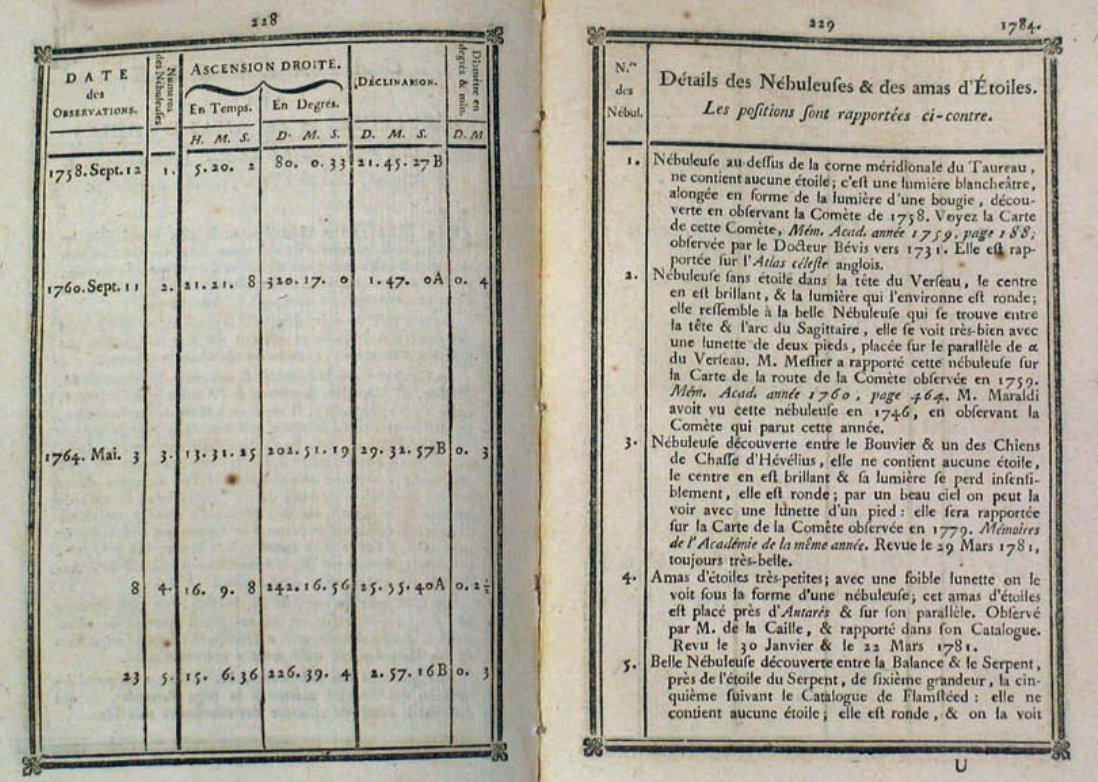 228
DATE
des
OBSERVATIONS.
Numéros
des Nébuleuses.
ASCENSION DROITE.
En Temps.
En Degrés.
DÉCLINAISON.
Diamètre en
degrés & min.
H. M. S.
D. M. S.
D. M. S.
D. M
1758. Sept. 12 1. 5. 20. 2 80. 0. 33 21. 45. 27 B
1760. Sept. 11 2. 21. 21. 8 320. 17. 0 1. 47. 0A 0. 4
1764. Mai. 3 3. 13. 31. 25 202. 51. 19 29. 32. 57B 0. 3
8 4. 16. 9. 8 242. 16. 56 25. 55. 40A 0. 2½
23 5. 15. 6. 36 226. 39. 4 2. 57. 16B 0. 3
229 1784.
N.os
des
Nébul.
Détails des Nébuleuſes & des amas d'Étoiles.
Les poſitions ſont rapportées ci-contre.
1. Nébuleuſe au deſſus de la corne méridionale du Taureau,
ne contient aucune étoile; c'eſt une lumière blancheâtre,
alongée en forme de la lumière d'une bougie, décou-
verte en obſervant la Comète de 1758. Voyez la Carte
de cette Comète, Mém. Acad. année 1759, page 188;
obſervée par le Docteur Bévis vers 1731. Elle eſt rap-
portée ſur l'Atlas céleſte anglois.
2. Nébuleuſe ſans étoile dans la tête du Verſeau, le centre
en eſt brillant, & la lumière qui l'environne eſt ronde;
elle reſſemble à la belle Nébuleuſe qui ſe trouve entre
la tête & l'arc du Sagittaire, elle ſe voit très-bien avec
une lunette de deux pieds, placée ſur le parallèle de α
du Verſeau. M. Meſſier a rapporté cette nébuleuſe ſur
la Carte de la route de la Comète obſervée en 1759.
Mém. Acad. année 1760, page 464. M. Maraldi
avoit vu cette nébuleuſe en 1746, en obſervant la
Comète qui parut cette année.
3. Nébuleuſe découverte entre le Bouvier & un des Chiens
de Chaſſe d'Hévélius, elle ne contient aucune étoile,
le centre en eſt brillant & ſa lumière ſe perd inſenſi-
blement, elle eſt ronde; par un beau ciel on peut la
voir avec une lunette d'un pied: elle ſera rapportée
ſur la Carte de la Comète obſervée en 1779. Mémoires
de l'Académie de la même année. Revue le 29 Mars 1781,
toujours très-belle.
4. Amas d'étoiles très-petites; avec une foible lunette on le
voit ſous la forme d'une nébuleuſe; cet amas d'étoiles
eſt placé près d'Antarès & ſur ſon parallèle. Obſervé
par M. de la Caille, & rapporté dans ſon Catalogue.
Revu le 30 Janvier & le 22 Mars 1781.
5. Belle Nébuleuſe découverte entre la Balance & le Serpent,
près de l'étoile du Serpent, de ſixième grandeur, la cin-
quième ſuivant le Catalogue de Flamſtéed: elle ne
contient aucune étoile; elle eſt ronde, & on la voit
U